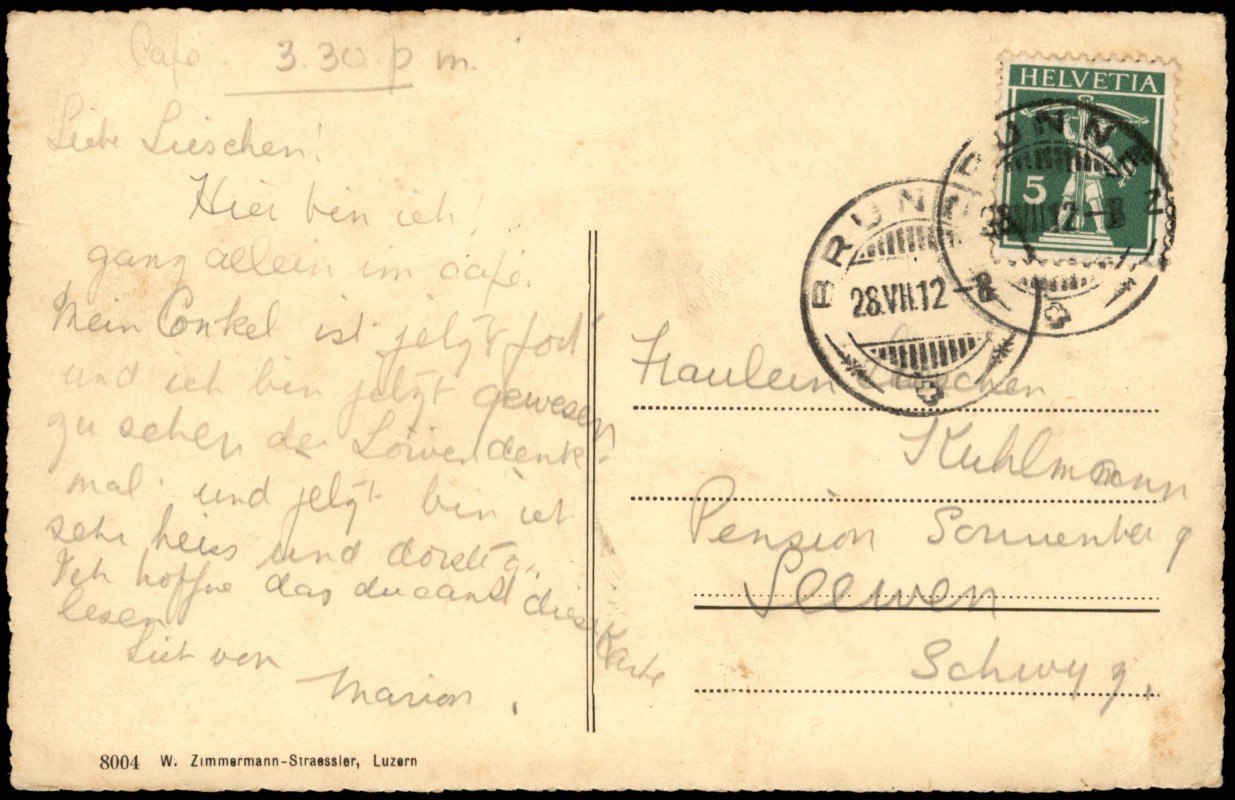 Café 3.30 p.m.
Liebe Lieschen!
Hier bin ich!
ganz allein im café.
Mein Conkel ist jetzt fort
und ich bin jetzt gewesen
zu sehen der Löwendenk-
mal. und jetzt bin ich
sehr heiss und dorstig.
Ich hoffe das du canst diese Karte
lesen
Lieb von
Marion.
8004 W. Zimmermann-Straessler, Luzern
HELVETIA
5
BRUNNEN
28.VII.12-8
BRUNNEN
28.VII.12-8
Fraulein Lieschen
Kuhlmann
Pension Sonnenberg
Seewen
Schwyz.